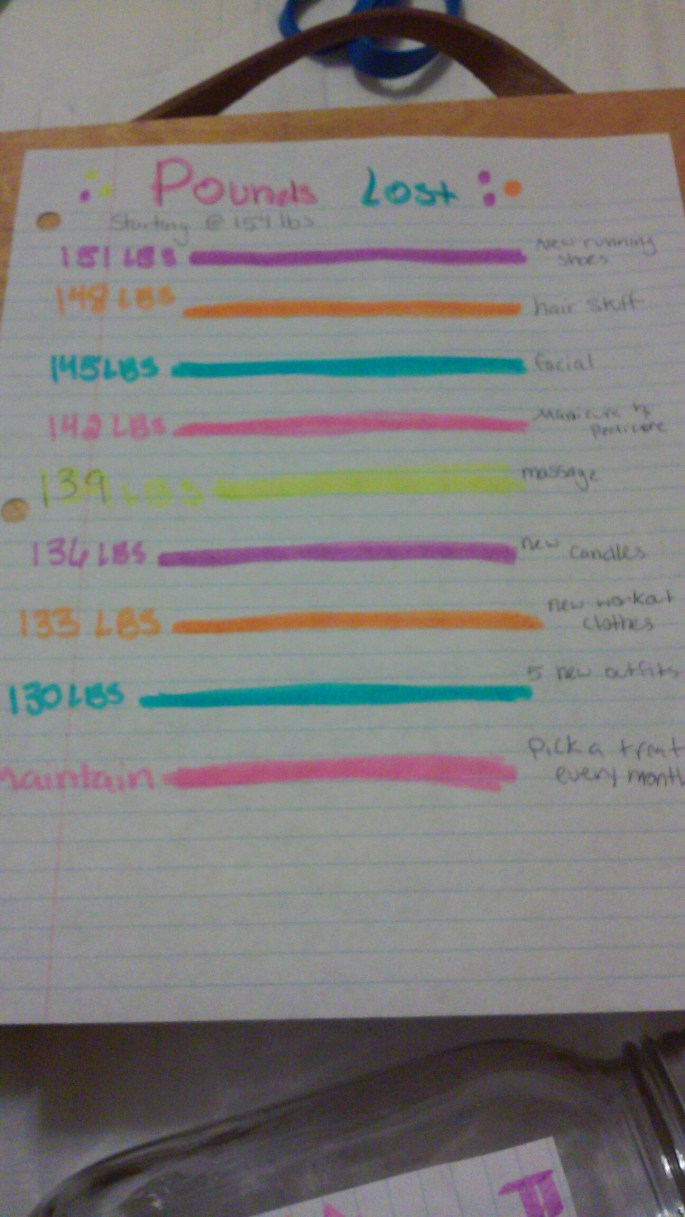 Pounds Lost
Starting @ 154 lbs
151 LBS New running
shoes
148 LBS hair stuff
145 LBS facial
142 LBS Manicure &
Pedicure
139 LBS massage
136 LBS new candles
133 LBS new workout
clothes
130 LBS 5 new outfits
Maintain Pick a treat
every month